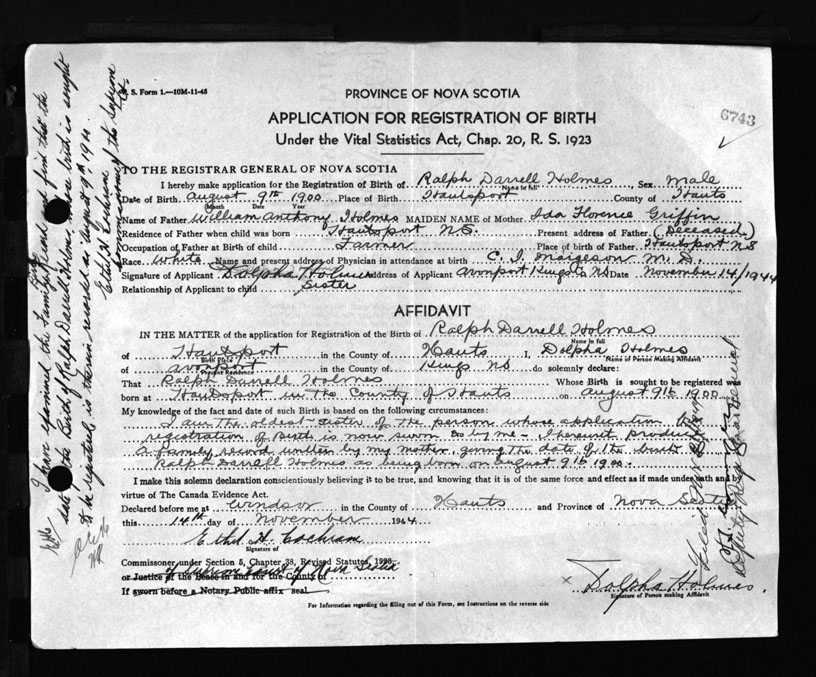 V. S. Form 1.—10M-11-45
PROVINCE OF NOVA SCOTIA
6743
APPLICATION FOR REGISTRATION OF BIRTH
Under the Vital Statistics Act, Chap. 20, R. S. 1923
TO THE REGISTRAR GENERAL OF NOVA SCOTIA
I hereby make application for the Registration of Birth of Ralph Darrell Holmes, Sex male
Name in full
Date of Birth August 9th 1900 Place of Birth Hantsport County of Hants
Month Date Year
Name of Father William Anthony Holmes MAIDEN NAME of Mother Ida Florence Griffin
Residence of Father when child was born Hantsport N.S. Present address of Father (Deceased)
Occupation of Father at Birth of child Farmer Place of birth of Father Hantsport N S
Race White Name and present address of Physician in attendance at birth C. I. M. D.
Signature of Applicant Dolpha Holmes Address of Applicant Avonport Kings Co NS Date November 14/1944
Relationship of Applicant to child Sister
AFFIDAVIT
IN THE MATTER of the application for Registration of the Birth of Ralph Darrell Holmes
Name in full
of Hantsport in the County of Hants I, Dolpha Holmes
Birth Place Name of Person Making Affidavit
of Avonport in the County of Kings NS do solemnly declare:
Present Residence
That Ralph Darrell Holmes Whose Birth is sought to be registered was
born at Hantsport in the County of Hants on August 9th 1900
My knowledge of the fact and date of such Birth is based on the following circumstances:
I am the oldest sister of the person whose application for
registration of Birth is now sworn to by me - I herewith produce
a family record written by my mother, giving the date of the birth
Ralph Darrell Holmes as being born on August 9th 1900.
I make this solemn declaration conscientiously believing it to be true, and knowing that it is of the same force and effect as if made under oath and by
virtue of The Canada Evidence Act.
Declared before me at Windsor in the County of Hants and Province of Nova Scotia
this 14th day of November 1944
Ethel H. Cochran
Signature of
Commissioner under Section 5, Chapter 38, Revised Statutes, 1923
of Supreme Court of Nova Scotia
or Justice of the Peace in and for the County of
If sworn before a Notary Public affix seal.
x Dolpha Holmes.
Signature of Person making Affidavit
For Information regarding the filling out of this Form, see Instructions on the reverse side
I have examined the Family Record and find that the
date of the Birth of Ralph Darrell Holmes whose birth is sought
to be registered, is therein recorded as August 9th, 1900.
Ethel H. Cochran
of the Supreme
Filed
Deputy Registrar General